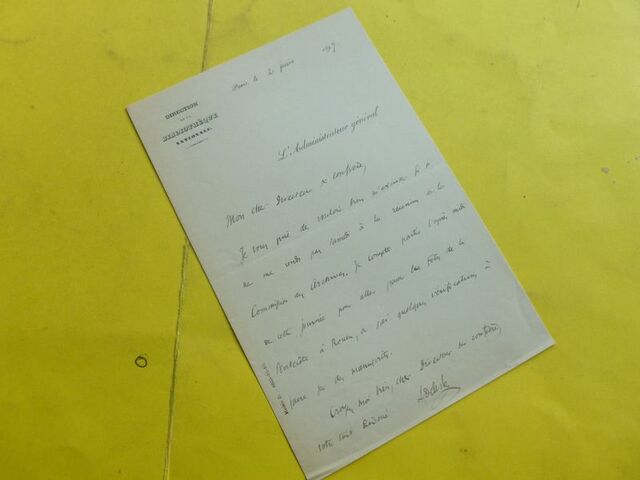 Paris le 2 juin 189
DIRECTION
DE LA
BIBLIOTHÈQUE
NATIONALE.
L'Administrateur général
Mon cher Directeur & confrère,
Je vous prie de vouloir bien m'excuser si
je ne me rends pas samedi à la réunion de la
Commission des Archives. Je compte partir l'après midi
de cette journée pour aller passer les fêtes de la
Pentecôte à Rouen, où j'ai quelques vérifications à
faire sur des manuscrits.
Croyez moi bien, cher Directeur et confrère,
votre tout dévoué
L Delisle